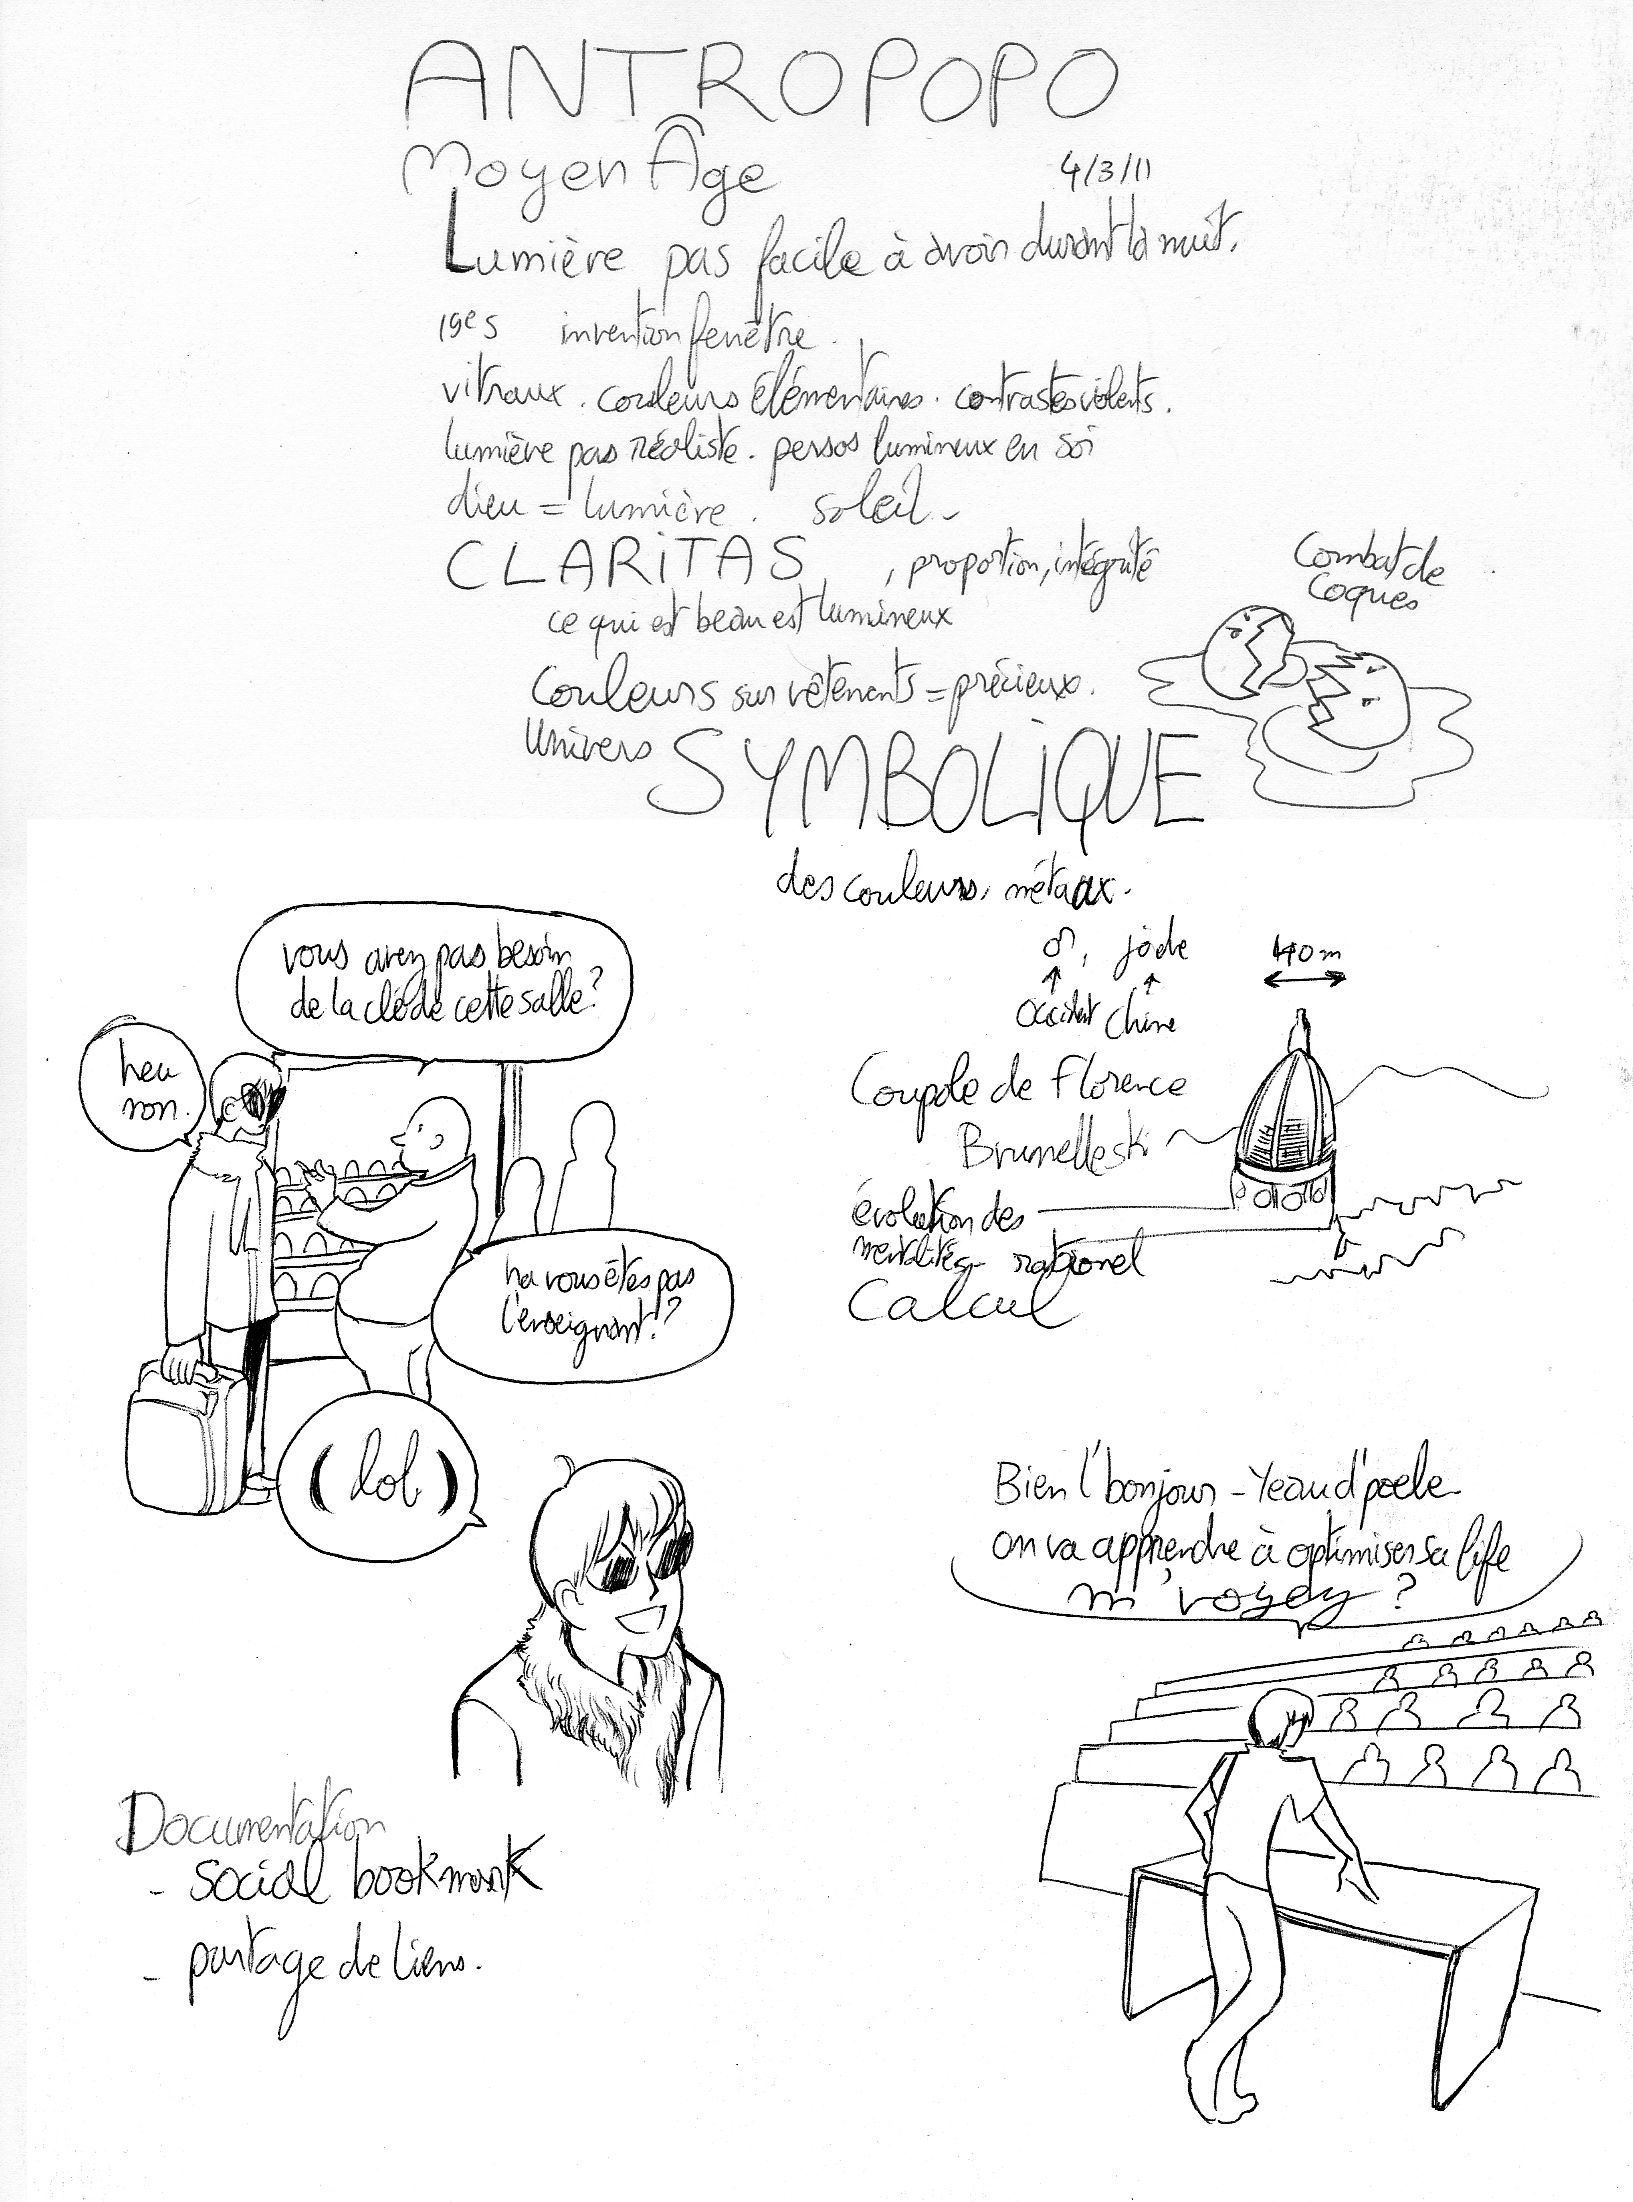 ANTROPOPO
Moyen Âge
4/3/11
Lumière pas facile à avoir durant la nuit.
19e s invention fenêtre.
vitraux. couleurs élémentaires. contrastes violents.
lumière pas réaliste. persos lumineux en soi
dieu = lumière. soleil
CLARITAS, proportion, intégrité
ce qui est beau est lumineux
Combat de
Coques
Couleurs sur vêtements = précieux.
Univers SYMBOLIQUE
des couleurs, métaux.
vous avez pas besoin
de la clé de cette salle?
heu
non.
ha vous êtes pas
l'enseignant!?
(lol)
♂, jade
40 m
Occident Chine
Coupole de Florence
Brunelleski
évolution des
mentalités rationel
Calcul
Bien l'bonjour - Yeau d'poele
on va apprendre à optimiser sa life
m'voyey?
Documentation
- social bookmark
- partage de liens.